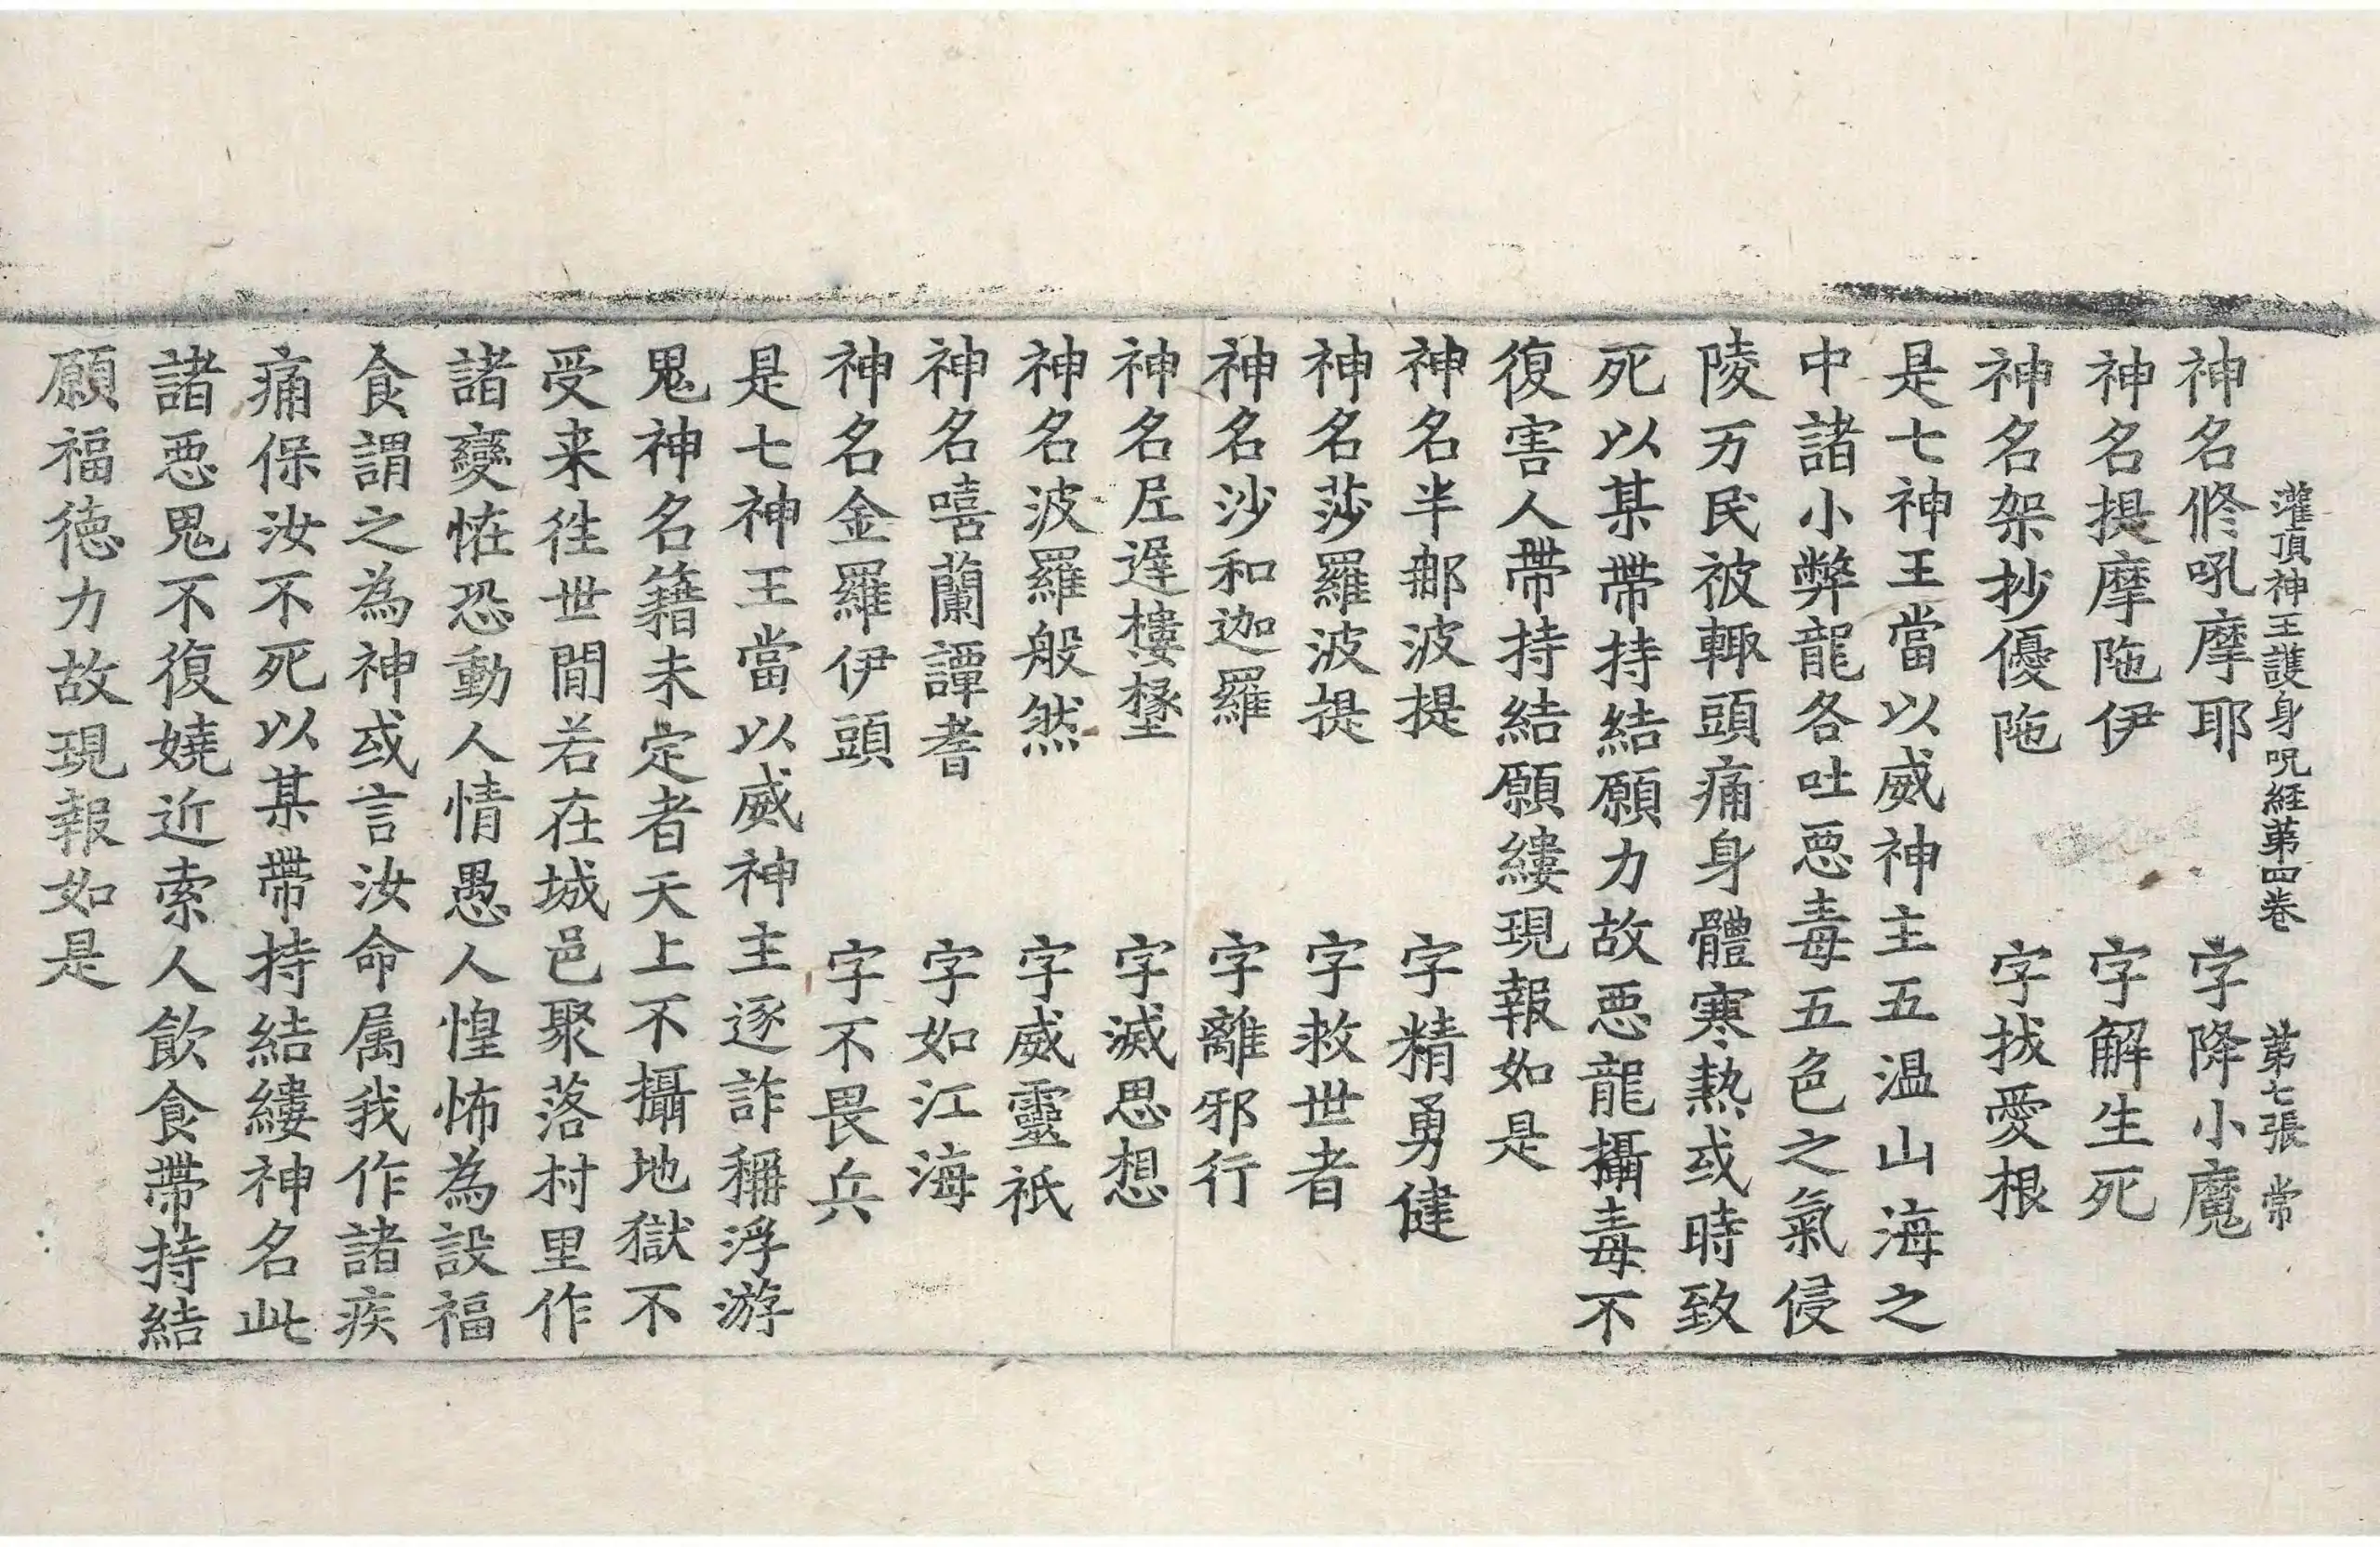 灌頂神王護身呪経第四巻　第七張　常
神名修吼摩耶　字降小魔
神名提摩陁伊　字解生死
神名架抄優陁　字拔愛根
是七神王當以威神主五温山海之
中諸小弊龍各吐惡毒五色之氣侵
陵万民被輙頭痛身體寒熱或時致
死以某帶持結願力故惡龍攝毒不
復害人帶持結願縷現報如是
神名半那波提　字精勇健
神名莎羅波提　字救世者
神名沙和迦羅　字離邪行
神名丘遅樓　字滅思想
神名波羅般然　字威靈祇
神名嘻蘭譚耆　字如江海
神名金羅伊頭　字不畏兵
是七神王當以威神主逐詐稱浮游
鬼神名籍未定者天上不攝地獄不
受来往世間若在城邑聚落村里作
諸變恠恐動人情愚人惶怖為設福
食謂之為神或言汝命属我作諸疾
痛保汝不死以某帶持結縷神名此
諸惡鬼不復嬈近索人飲食帶持結
願福徳力故現報如是